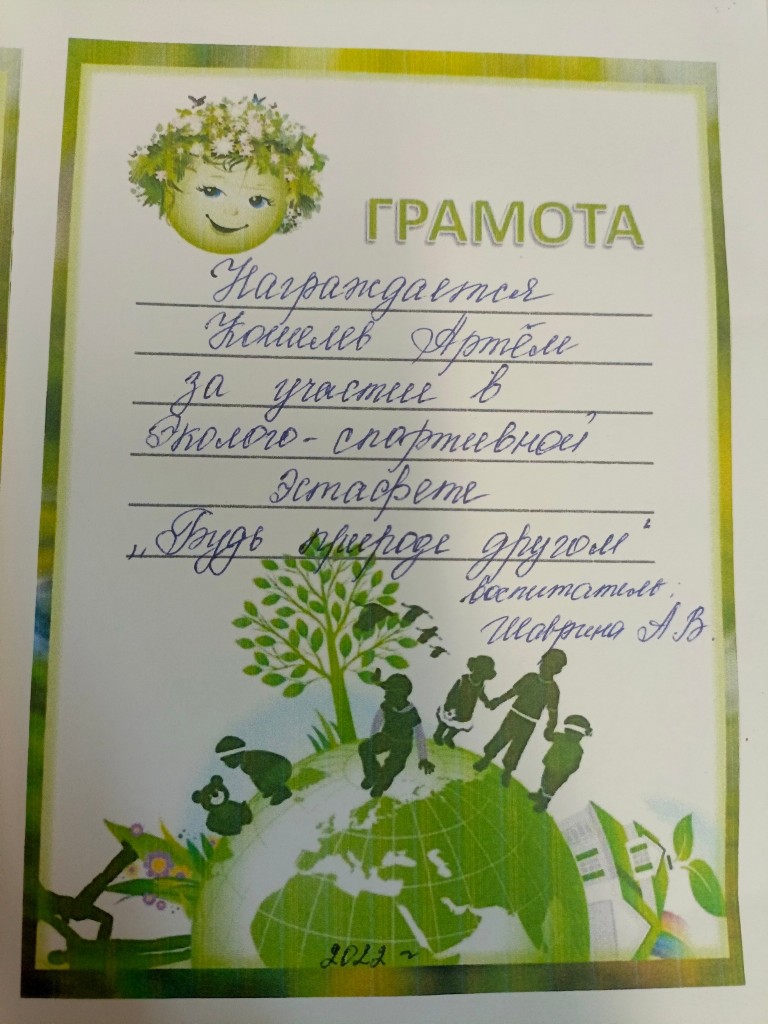 ГРАМОТА
Награждается
Кошелев Артём
за участие в
Эколого-спортивной
Эстафете
„Будь природе другом“
воспитатель:
Шаврина А.В.
2022 г